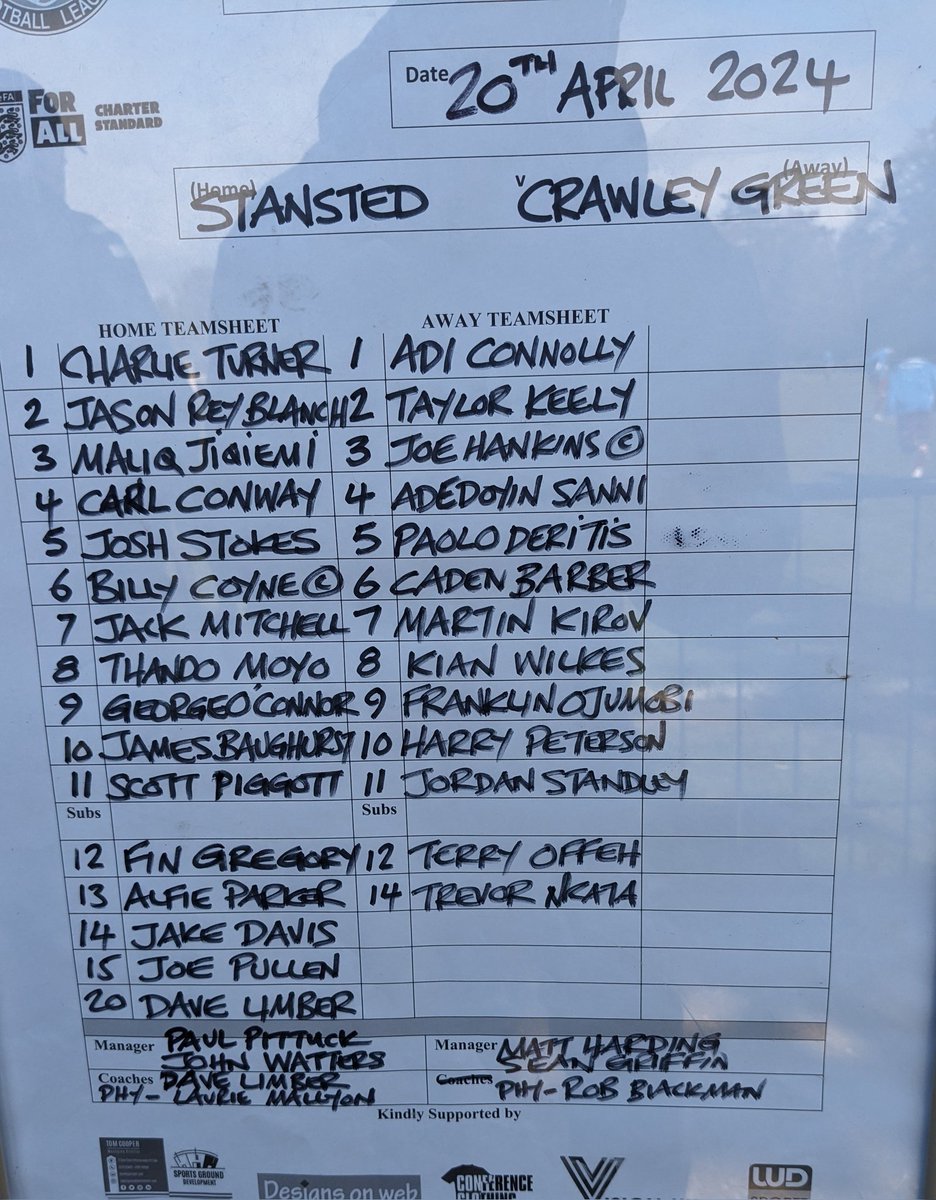 OTBALL LEAG
Date 20TH APRIL 2024
FOR ALL CHARTER STANDARD
(Home) (Away)
STANSTED v CRAWLEY GREEN
HOME TEAMSHEET AWAY TEAMSHEET
1 CHARLIE TURNER 1 ADI CONNOLLY
2 JASON REY BLANCH 2 TAYLOR KEELY
3 MALIQ JIQIEMI 3 JOE HANKINS ©
4 CARL CONWAY 4 ADEDOYIN SANNI
5 JOSH STOKES 5 PAOLO DERITIS
6 BILLY COYNE © 6 CADEN BARBER
7 JACK MITCHELL 7 MARTIN KIROV
8 THANDO MOYO 8 KIAN WILKES
9 GEORGE O'CONNOR 9 FRANKLIN OJUMOBI
10 JAMES BAUGHURST 10 HARRY PETERSON
11 SCOTT PIGGOTT 11 JORDAN STANDLEY
Subs Subs
12 FIN GREGORY 12 TERRY OFFEH
13 ALFIE PARKER 14 TREVOR NKATA
14 JAKE DAVIS
15 JOE PULLEN
20 DAVE LIMBER
Manager PAUL PITTUCK Manager MATT HARDING
JOHN WATTERS SEAN GRIFFIN
Coaches DAVE LIMBER Coaches PHY- ROB BLACKMAN
PHY- LAURIE MALLYON
Kindly Supported by
TOM COOPER
SPORTS GROUND DEVELOPMENT
Designs on web
CONFERENCE CLOTHING
LUD